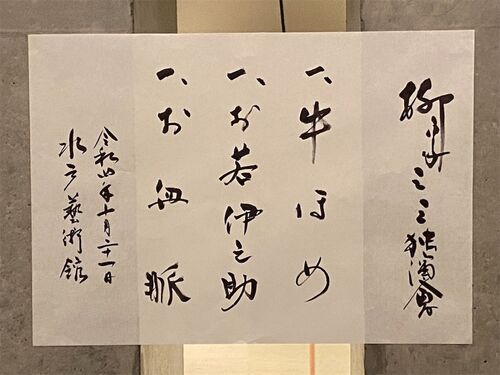 柳家三三独演會
一、牛ほめ
一、お若伊之助
一、お血脈
令和四年十月二十一日
水戸藝術館